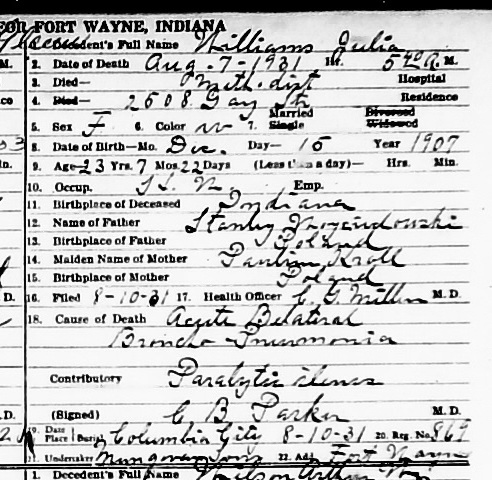 FOR FORT WAYNE, INDIANA
Decedent's Full Name Williams Julia
M. 2. Date of Death Aug-7-1931 Hr. 5 40 A.M.
3. Died— Meth. dist Hospital
4. Died— 2608 Gay St Residence
Married Divorced
5. Sex F 6. Color W 7. Single Widowed
8. Date of Birth—Mo. Dec. Day— 15 Year 1907
9. Age 23 Yrs. 7 Mos. 22 Days (Less than a day)— Hrs. Min.
10. Occup. Emp.
11. Birthplace of Deceased Indiana
12. Name of Father Stanley
13. Birthplace of Father Poland
14. Maiden Name of Mother Paulin Kroll
15. Birthplace of Mother Poland
D. 16. Filed 8-10-31 17. Health Officer E. G. Miller M. D.
18. Cause of Death Acute Bilateral
Broncho-Pneumonia
Contributory Paralytic Ileus
.D. (Signed) C B Parker M. D.
19. Date Place Burial Columbia City 8-10-31 20. Reg. No. 869
21. Undertaker Mungovan Sons 22. Add. Fort Wayne
1. Decedent's Full Name Wilson Arthur